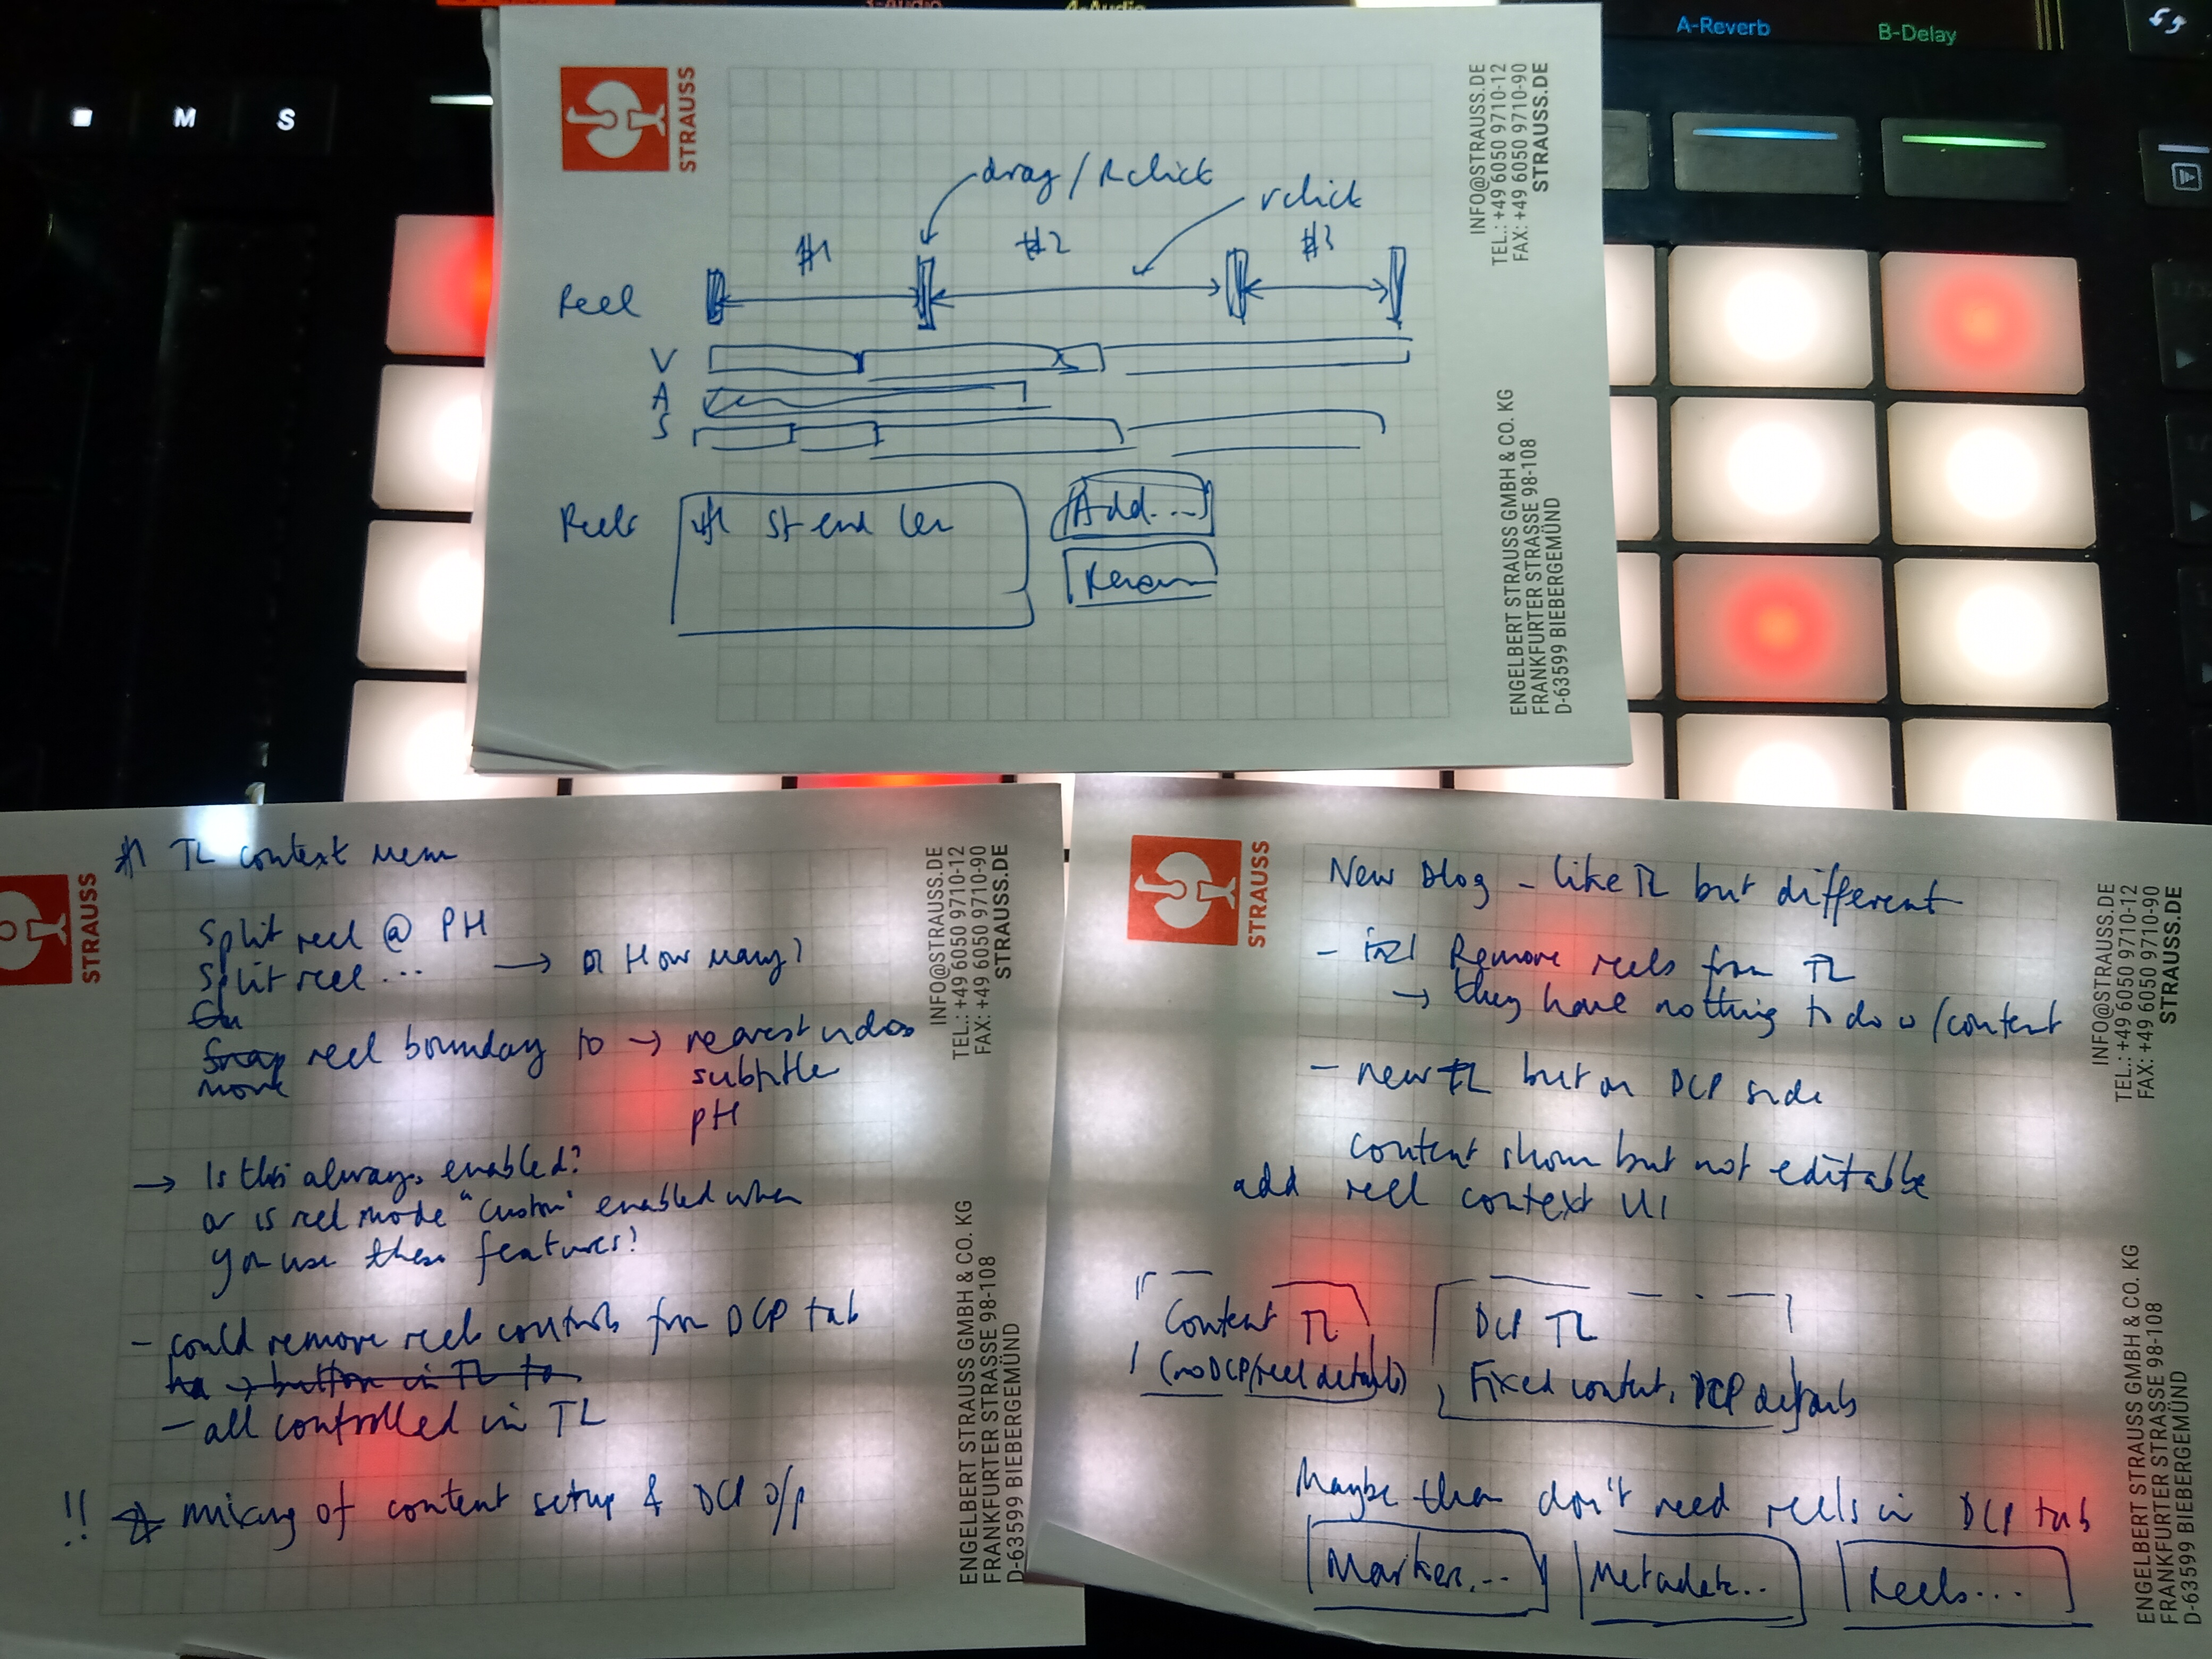 3-Audio
4-Audio
A-Reverb
B-Delay
M
S
STRAUSS
INFO@STRAUSS.DE
TEL.: +49 6050 9710-12
FAX: +49 6050 9710-90
STRAUSS.DE
ENGELBERT STRAUSS GMBH & CO. KG
FRANKFURTER STRASSE 98-108
D-63599 BIEBERGEMÜND
drag / Rclick
rclick
#1 #2 #3
Reel
V
A
S
Reels
# St end len
Add...
Remove
STRAUSS
INFO@STRAUSS.DE
TEL.: +49 6050 9710-12
FAX: +49 6050 9710-90
STRAUSS.DE
ENGELBERT STRAUSS GMBH & CO. KG
FRANKFURTER STRASSE 98-108
D-63599 BIEBERGEMÜND
#1 TL context menu
Split reel @ PH
Split reel ... → How many?
Snap reel boundary to → nearest video
move
subtitle
PH
→ Is this always enabled?
or is reel mode "custom" enabled when
you use these features?
- could remove reel controls from DCP tab
→ button in TL to
- all controlled in TL
!! mixing of content setup & DCP o/p
STRAUSS
INFO@STRAUSS.DE
TEL.: +49 6050 9710-12
FAX: +49 6050 9710-90
STRAUSS.DE
ENGELBERT STRAUSS GMBH & CO. KG
FRANKFURTER STRASSE 98-108
D-63599 BIEBERGEMÜND
New Dlog - like TL but different
- Remove reels from TL
→ they have nothing to do w/content
- new TL but on DCP side
content shown but not editable
add reel context UI
Content TL
(no DCP/reel details)
DCP TL
Fixed content, DCP details
Maybe then don't need reels in DCP tab
Markers...
Metadata...
Reels...